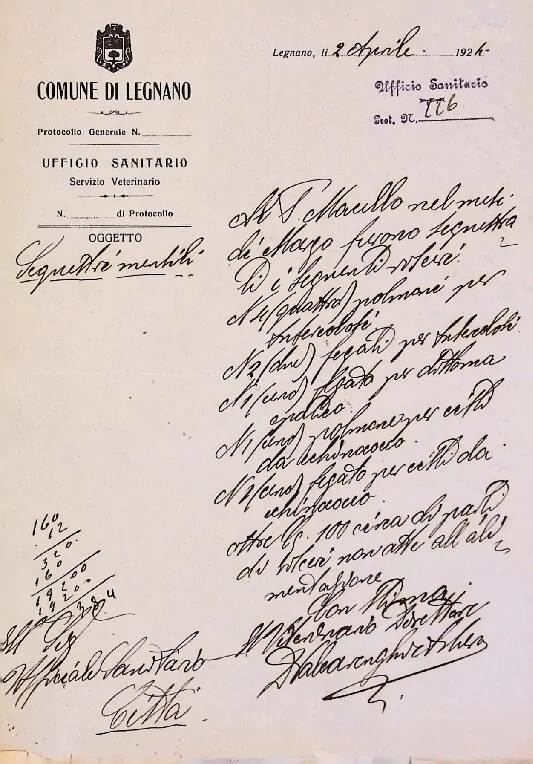 COMUNE DI LEGNANO
Protocollo Generale N.
UFFICIO SANITARIO
Servizio Veterinario
N. di Protocollo
OGGETTO
Sequestri mensili
Legnano, li 2 Aprile 1924
Ufficio Sanitario
Prot. N. 776
Al P. Macello nel mese
di Marzo furono sequestra
ti i seguenti visceri:
N 4 (quattro) polmoni per
tubercolosi
N 2 (due) fegati per tubercolosi
N 1 (uno) fegato per distoma
epatico
N 1 (uno) polmone per cisti
da echinococco.
N 1 (uno) fegato per cisti da
echinococco.
Oltre Kg. 100 circa di parti
di visceri non atte all'ali
mentazione
Con Stima
Il Veterinario Direttore
160
12
320
160
19200
1920
Ill Sig
Ufficiale Sanitario
Città